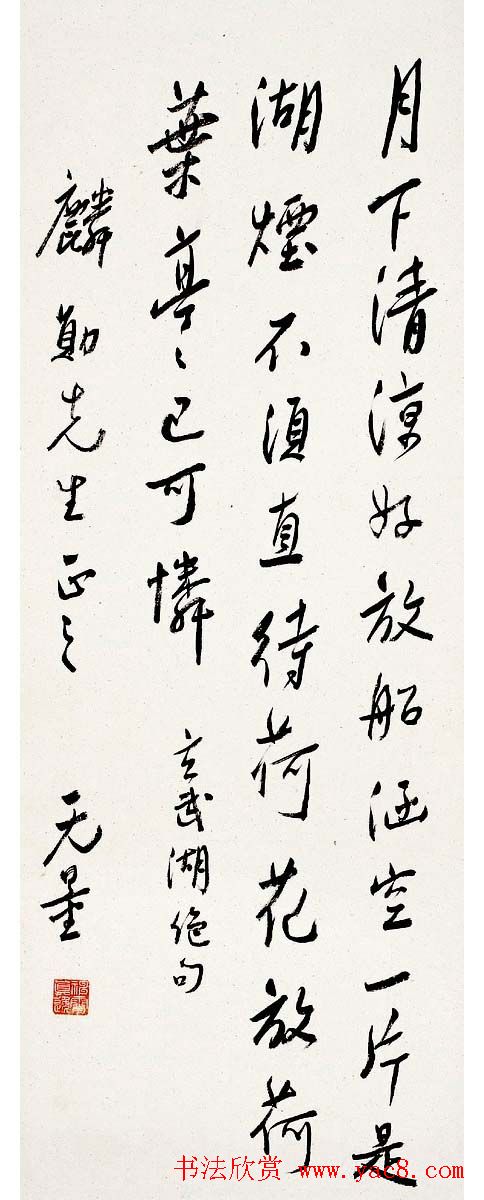 月下清涼好放船涵空一片是
湖煙不須直待荷花放荷
葉亭〻已可憐
玄武湖絕句
麟勛先生正之
无量
书法欣赏 www.yac8.com